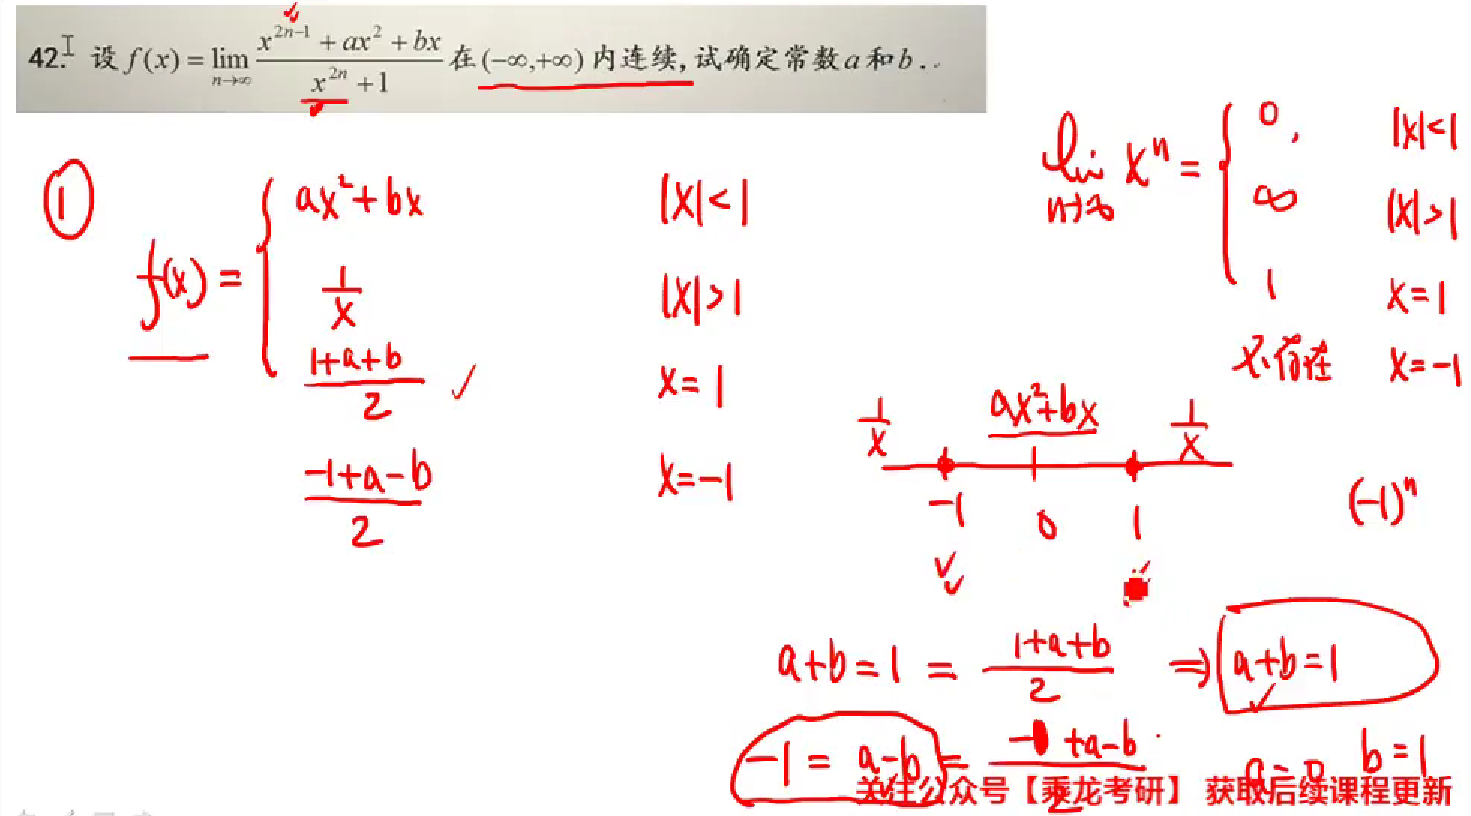 42. 设 f(x) = lim n→∞ (x^{2n-1} + ax² + bx)/(x^{2n} + 1) 在 (-∞,+∞) 内连续, 试确定常数 a 和 b.
①
f(x) = {
ax²+bx |x|<1
1/x |x|>1
(1+a+b)/2 ✓ x=1
(-1+a-b)/2 x=-1
lim n→∞ xⁿ = {
0, |x|<1
∞ |x|>1
1 x=1
不存在 x=-1
1/x ax²+bx 1/x
-1 0 1
(-1)ⁿ
a+b=1 = (1+a+b)/2 ⇒ a+b=1
-1 = a-b = (-1+a-b)/2 a=0 b=1
关注公众号【乘龙考研】 获取后续课程更新